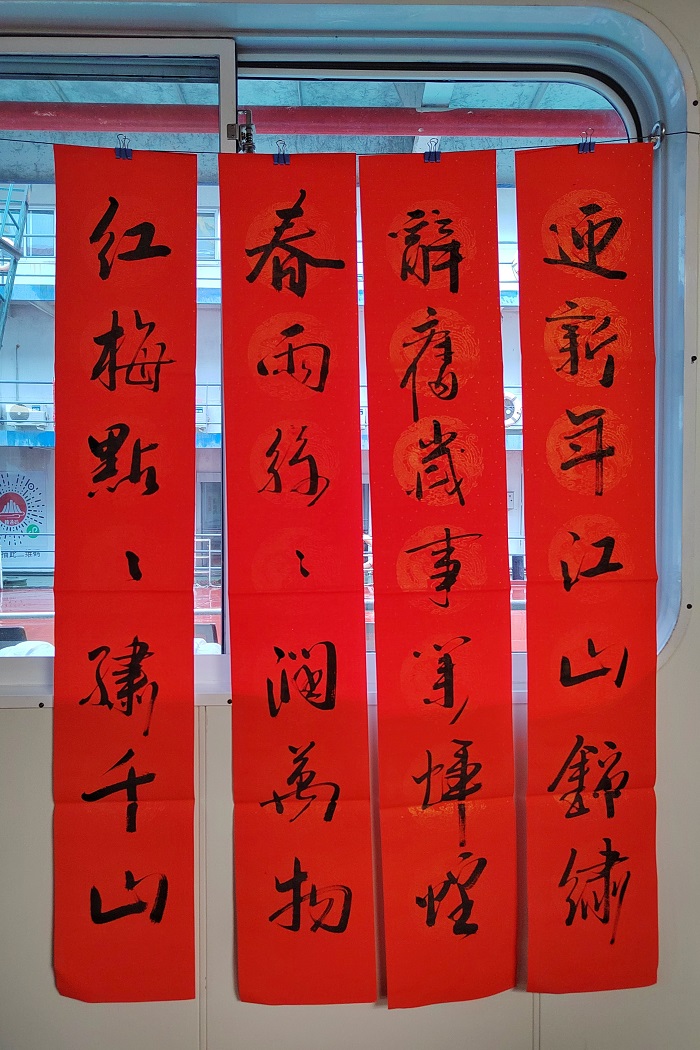 迎新年江山錦繡
辭舊歲事業煇煌
春雨絲〻潤萬物
紅梅點〻繡千山